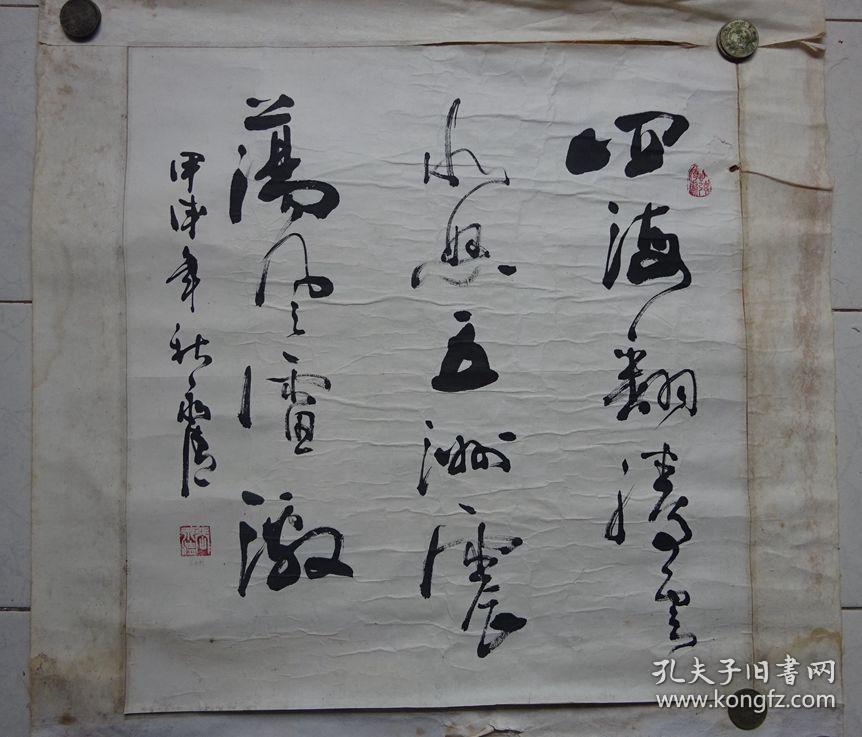 四海翻騰雲
水怒五洲震
蕩風雷激
甲戌年秋
孔夫子旧书网
www.kongfz.com